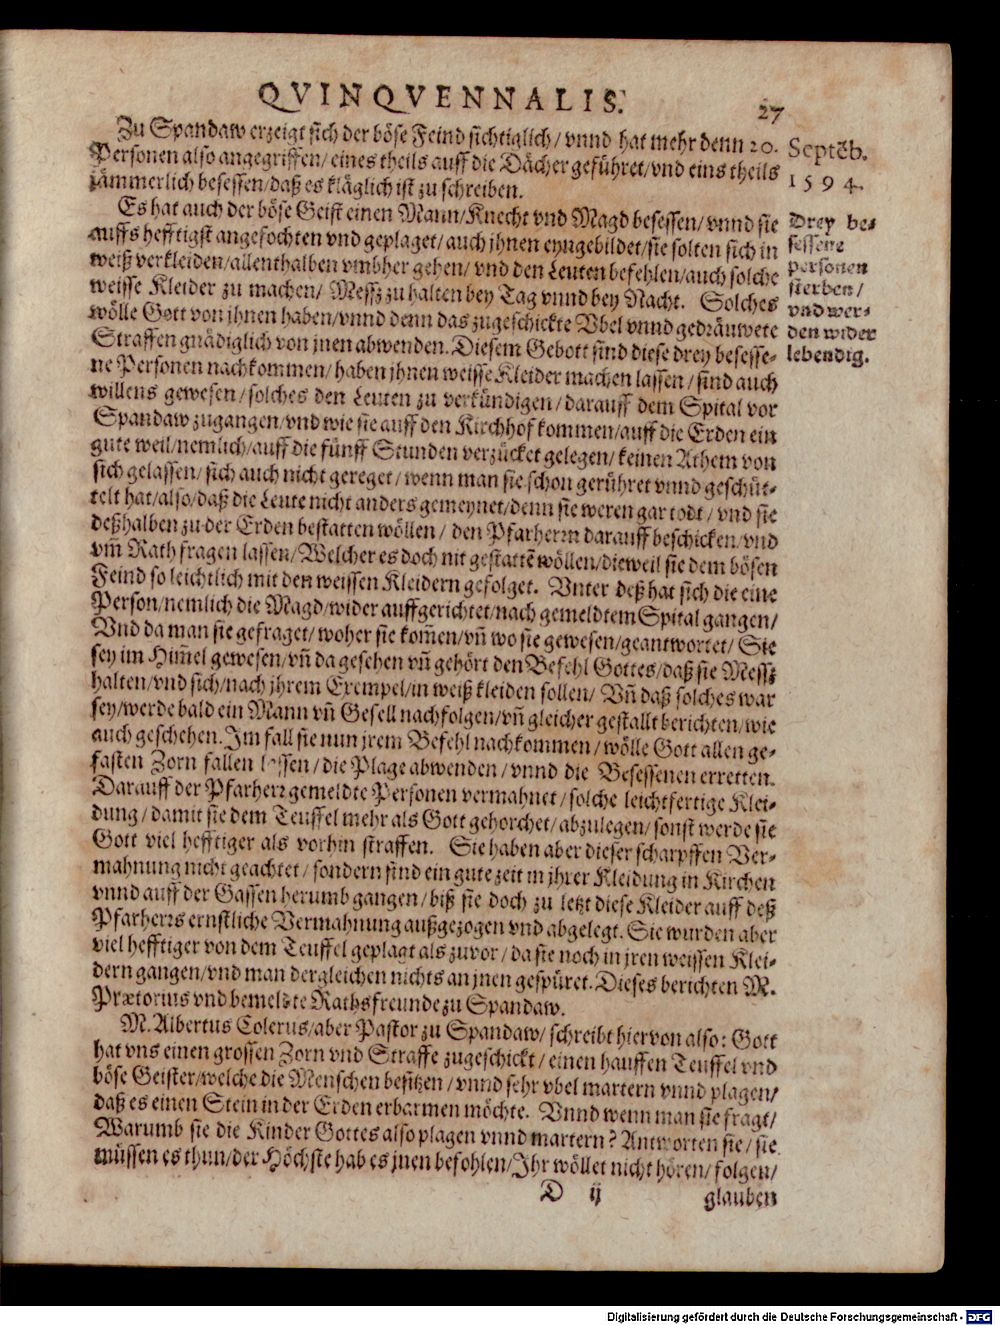 QVINQVENNALIS.
27
Zu Spandaw erzeigt sich der böse Feind sichtiglich / vnnd hat mehr denn 20.
Personen also angegriffen / eines theils auff die Dächer geführet / vnd eins theils
jämmerlich besessen / daß es kläglich ist zu schreiben.
Septēb.
1594.
Es hat auch der böse Geist einen Mann / Knecht vnd Magd besessen / vnnd sie
auffs hefftigst angefochten vnd geplaget / auch jhnen eyngebildet / sie solten sich in
weiß verkleiden / allenthalben vmbher gehen / vnd den Leuten befehlen / auch solche
weisse Kleider zu machen / Messz zu halten bey Tag vnnd bey Nacht. Solches
wölle Gott von jhnen haben / vnnd denn das zugeschickte Vbel vnnd gedräuwete
Straffen gnädiglich von jnen abwenden. Diesem Gebott sind diese drey besesse-
ne Personen nachkommen / haben jhnen weisse Kleider machen lassen / sind auch
willens gewesen / solches den Leuten zu verkündigen / darauff dem Spital vor
Spandaw zugangen / vnd wie sie auff den Kirchhof kommen / auff die Erden ein
gute weil / nemlich / auff die fünff Stunden verzücket gelegen / keinen Athem von
sich gelassen / sich auch nicht gereget / wenn man sie schon gerühret vnnd geschüt-
telt hat / also / daß die Leute nicht anders gemeynet / denn sie weren gar todt / vnd sie
deßhalben zu der Erden bestatten wöllen / den Pfarherrn darauff beschicken / vnd
vm̄ Rath fragen lassen / Welcher es doch nit gestattē wöllen / dieweil sie dem bösen
Feind so leichtlich mit den weissen Kleidern gefolget. Vnter deß hat sich die eine
Person / nemlich die Magd / wider auffgerichtet / nach gemeldtem Spital gangen /
Vnd da man sie gefraget / woher sie kom̄en / vn̄ wo sie gewesen / geantwortet / Sie
sey im Him̄el gewesen / vn̄ da gesehen vn̄ gehört den Befehl Gottes / daß sie Messz
halten / vnd sich / nach jhrem Exempel / in weiß kleiden sollen / Vn̄ daß solches war
sey / werde bald ein Mann vn̄ Gesell nachfolgen / vn̄ gleicher gestallt berichten / wie
auch geschehen. Im fall sie nun jrem Befehl nachkommen / wölle Gott allen ge-
fasten Zorn fallen lassen / die Plage abwenden / vnnd die Besessenen erretten.
Darauff der Pfarherr gemeldte Personen vermahnet / solche leichtfertige Klei-
dung / damit sie dem Teuffel mehr als Gott gehorchet / abzulegen / sonst werde sie
Gott viel hefftiger als vorhin straffen. Sie haben aber dieser scharpffen Ver-
mahnung nicht geachtet / sondern sind ein gute zeit in jhrer Kleidung in Kirchen
vnnd auff der Gassen herumb gangen / biß sie doch zu letzt diese Kleider auff deß
Pfarherrs ernstliche Vermahnung außgezogen vnd abgelegt. Sie wurden aber
viel hefftiger von dem Teuffel geplagt als zuvor / da sie noch in jren weissen Klei-
dern gangen / vnd man dergleichen nichts an jnen gespüret. Dieses berichten M.
Prætorius vnd bemeldte Rathsfreunde zu Spandaw.
Drey be-
sessene
personen
sterben /
vnd wer-
den wider
lebendig.
M. Albertus Colerus / aber Pastor zu Spandaw / schreibt hiervon also: Gott
hat vns einen grossen Zorn vnd Straffe zugeschickt / einen hauffen Teuffel vnd
böse Geister / welche die Menschen besitzen / vnnd sehr vbel martern vnnd plagen /
daß es einen Stein in der Erden erbarmen möchte. Vnnd wenn man sie fragt /
Warumb sie die Kinder Gottes also plagen vnnd martern? Antworten sie / sie
müssen es thun / der Höchste hab es jnen befohlen / Ihr wöllet nicht hören / folgen /
D ij
glauben
Digitalisierung gefördert durch die Deutsche Forschungsgemeinschaft - DFG